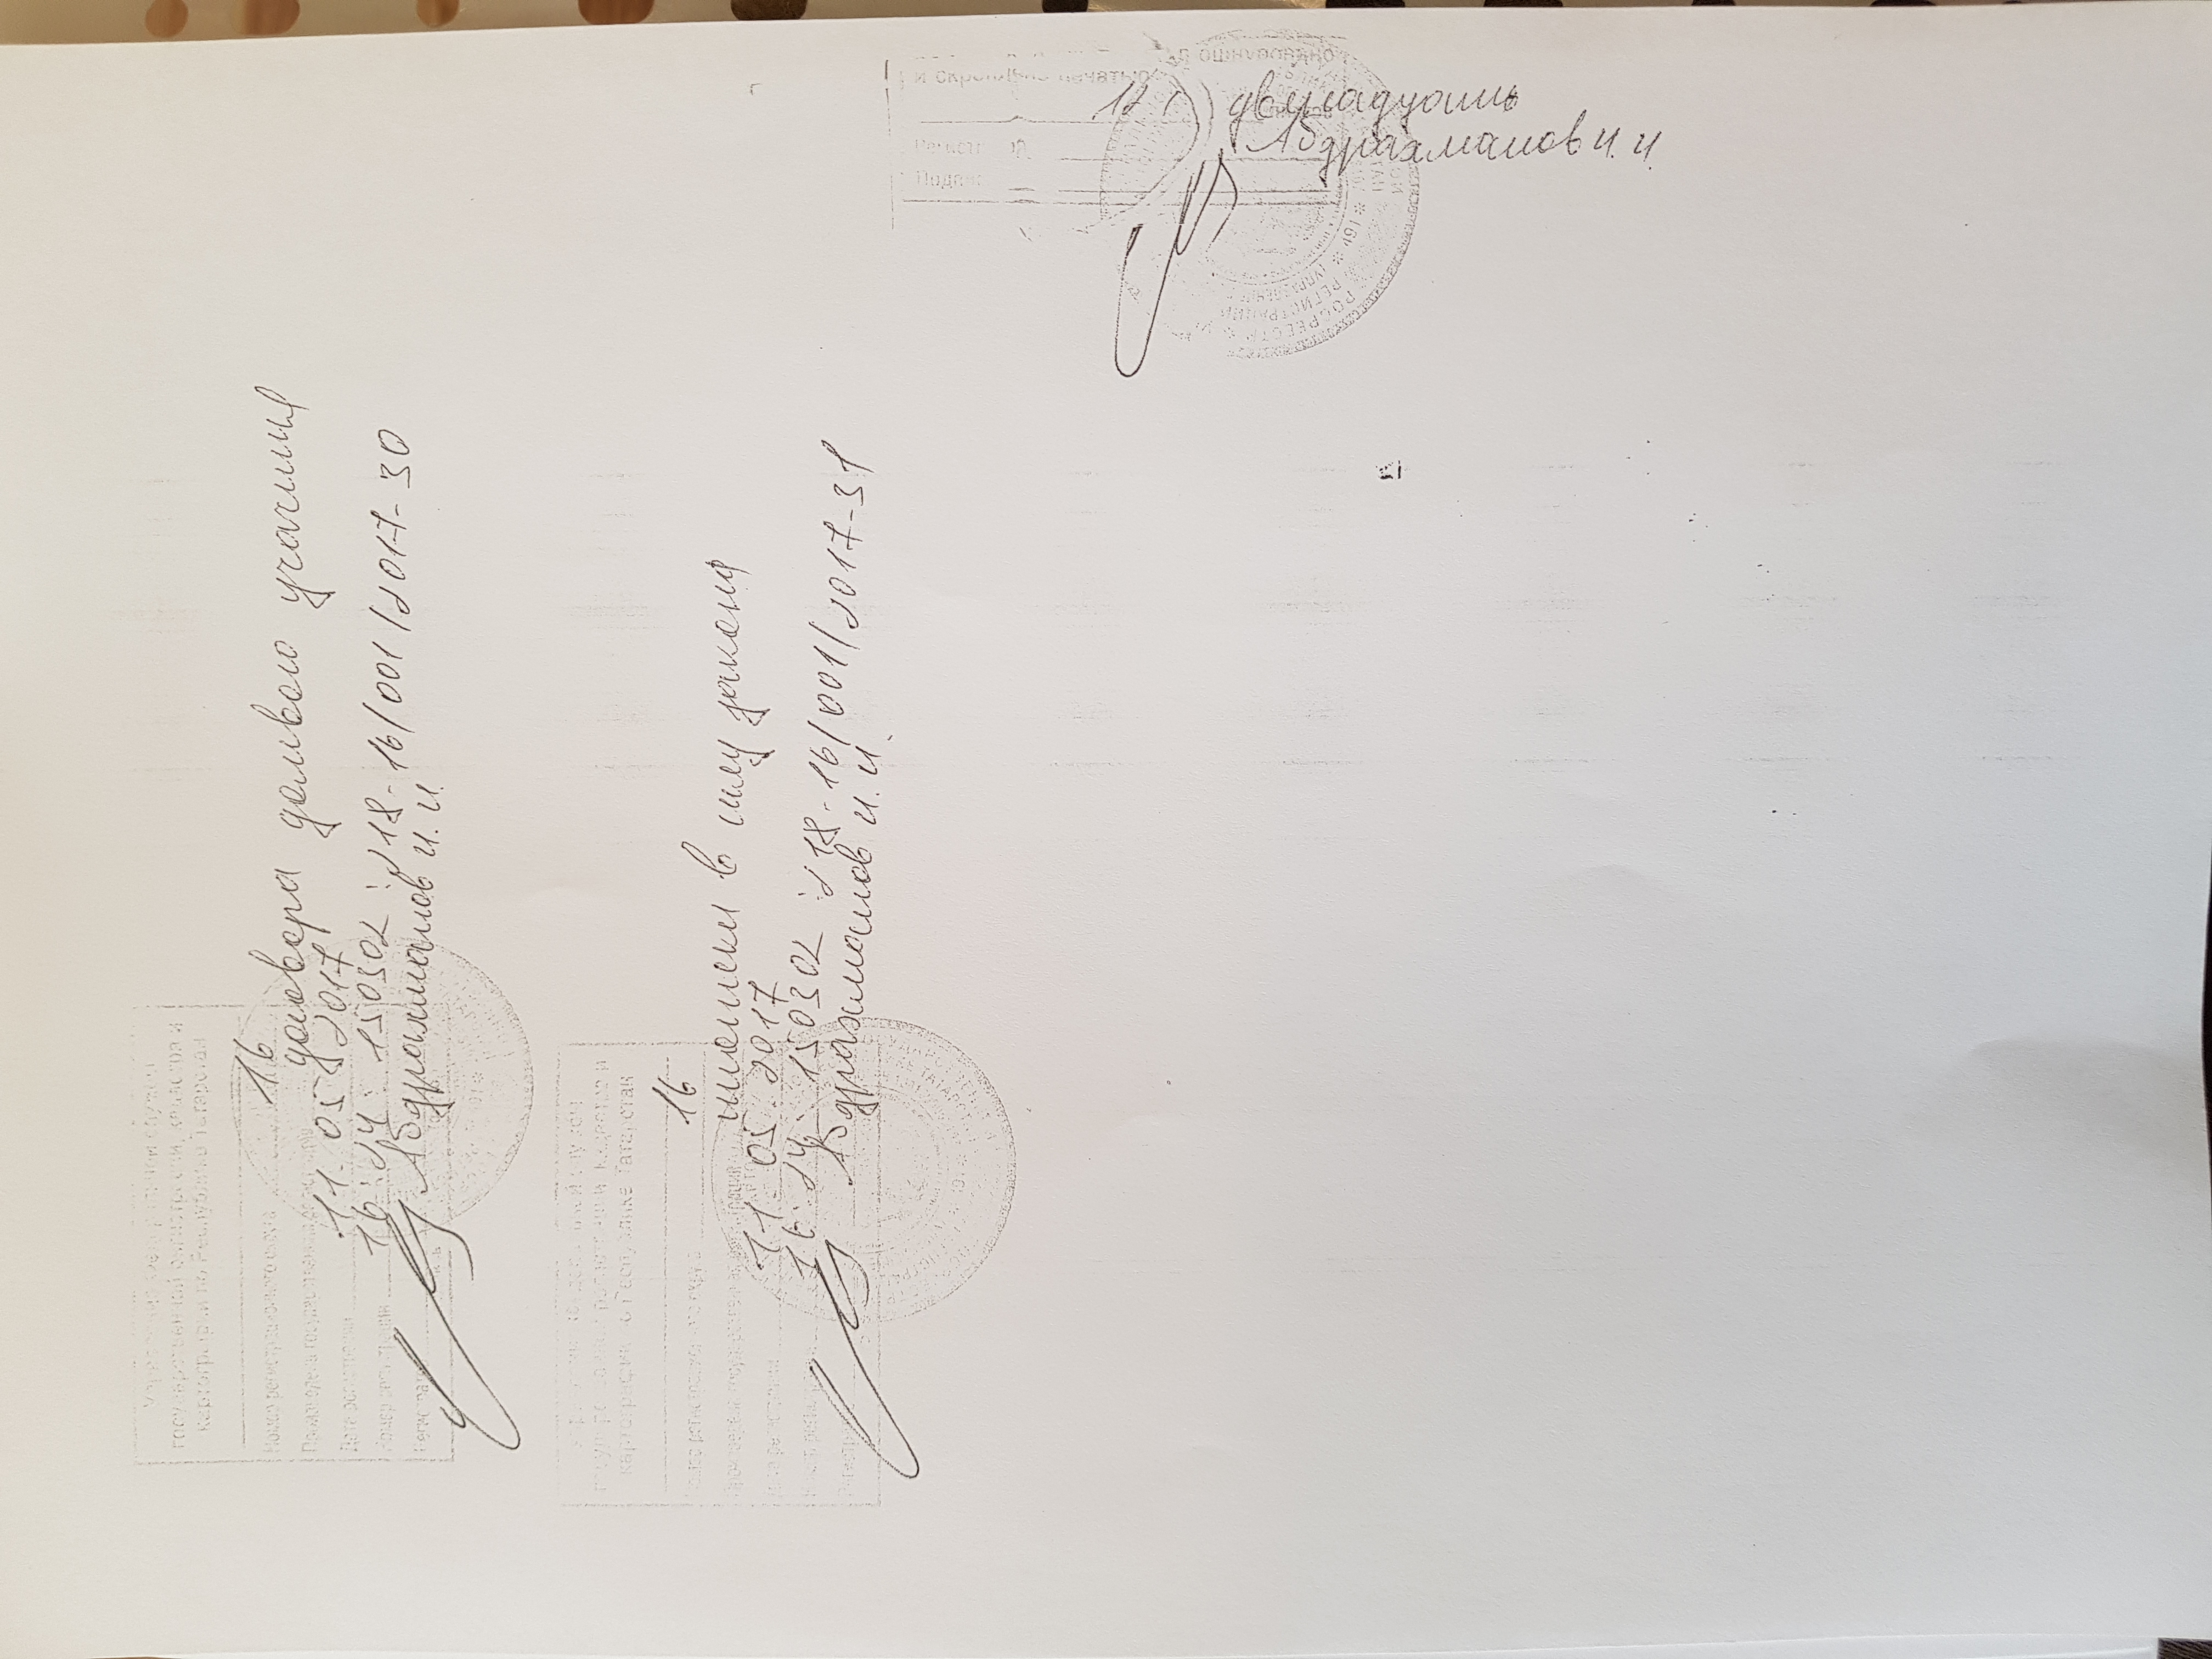 Управление Федеральной службы
государственной регистрации, кадастра и
картографии по Республике Татарстан
Номер регистрационного округа 16
Произведена государственная регистрация договора долевого участия
Дата регистрации 11.05.2017
Номер регистрации 16:24:150302:218-16/001/2017-30
Регистратор Абдрахманов И.И.
Управление Федеральной службы
государственной регистрации, кадастра и
картографии по Республике Татарстан
Номер регистрационного округа 16
Произведена государственная регистрация ипотеки в силу закона
Дата регистрации 11.05.2017
Номер регистрации 16:24:150302:218-16/001/2017-31
Регистратор Абдрахманов И.И.
и скреплено печатью
двенадцать
Абдрахманов И.И.